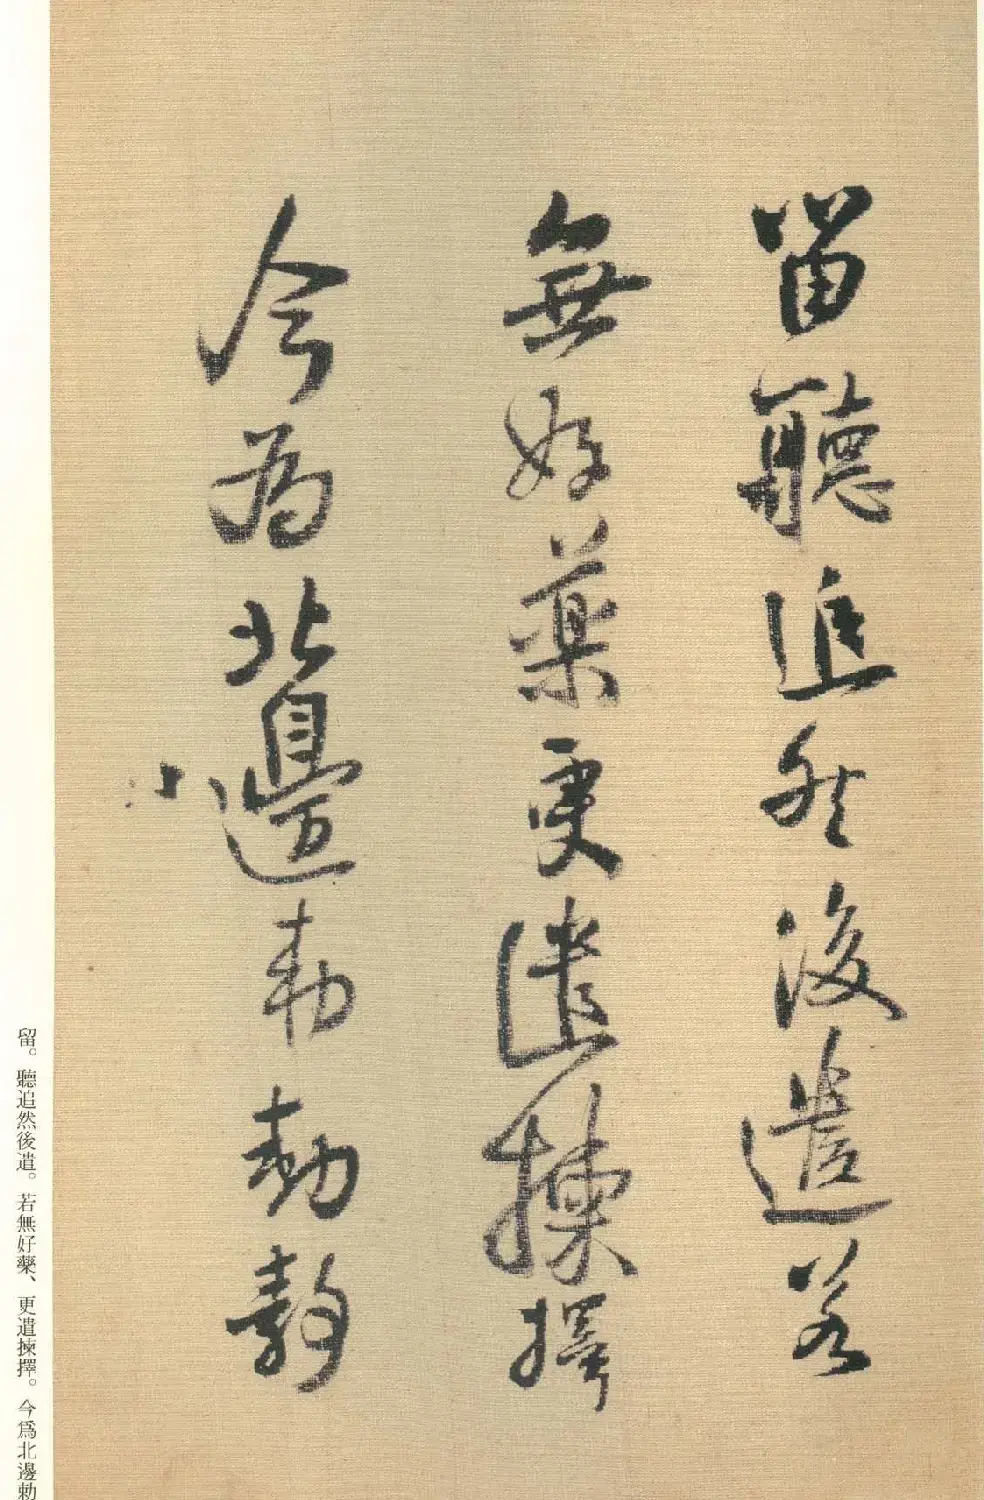 留聽追然後遣若
無好藥更遣揀擇
今為北邊勅
留。聽追然後遣。若無好藥、更遣揀擇。今爲北邊勅